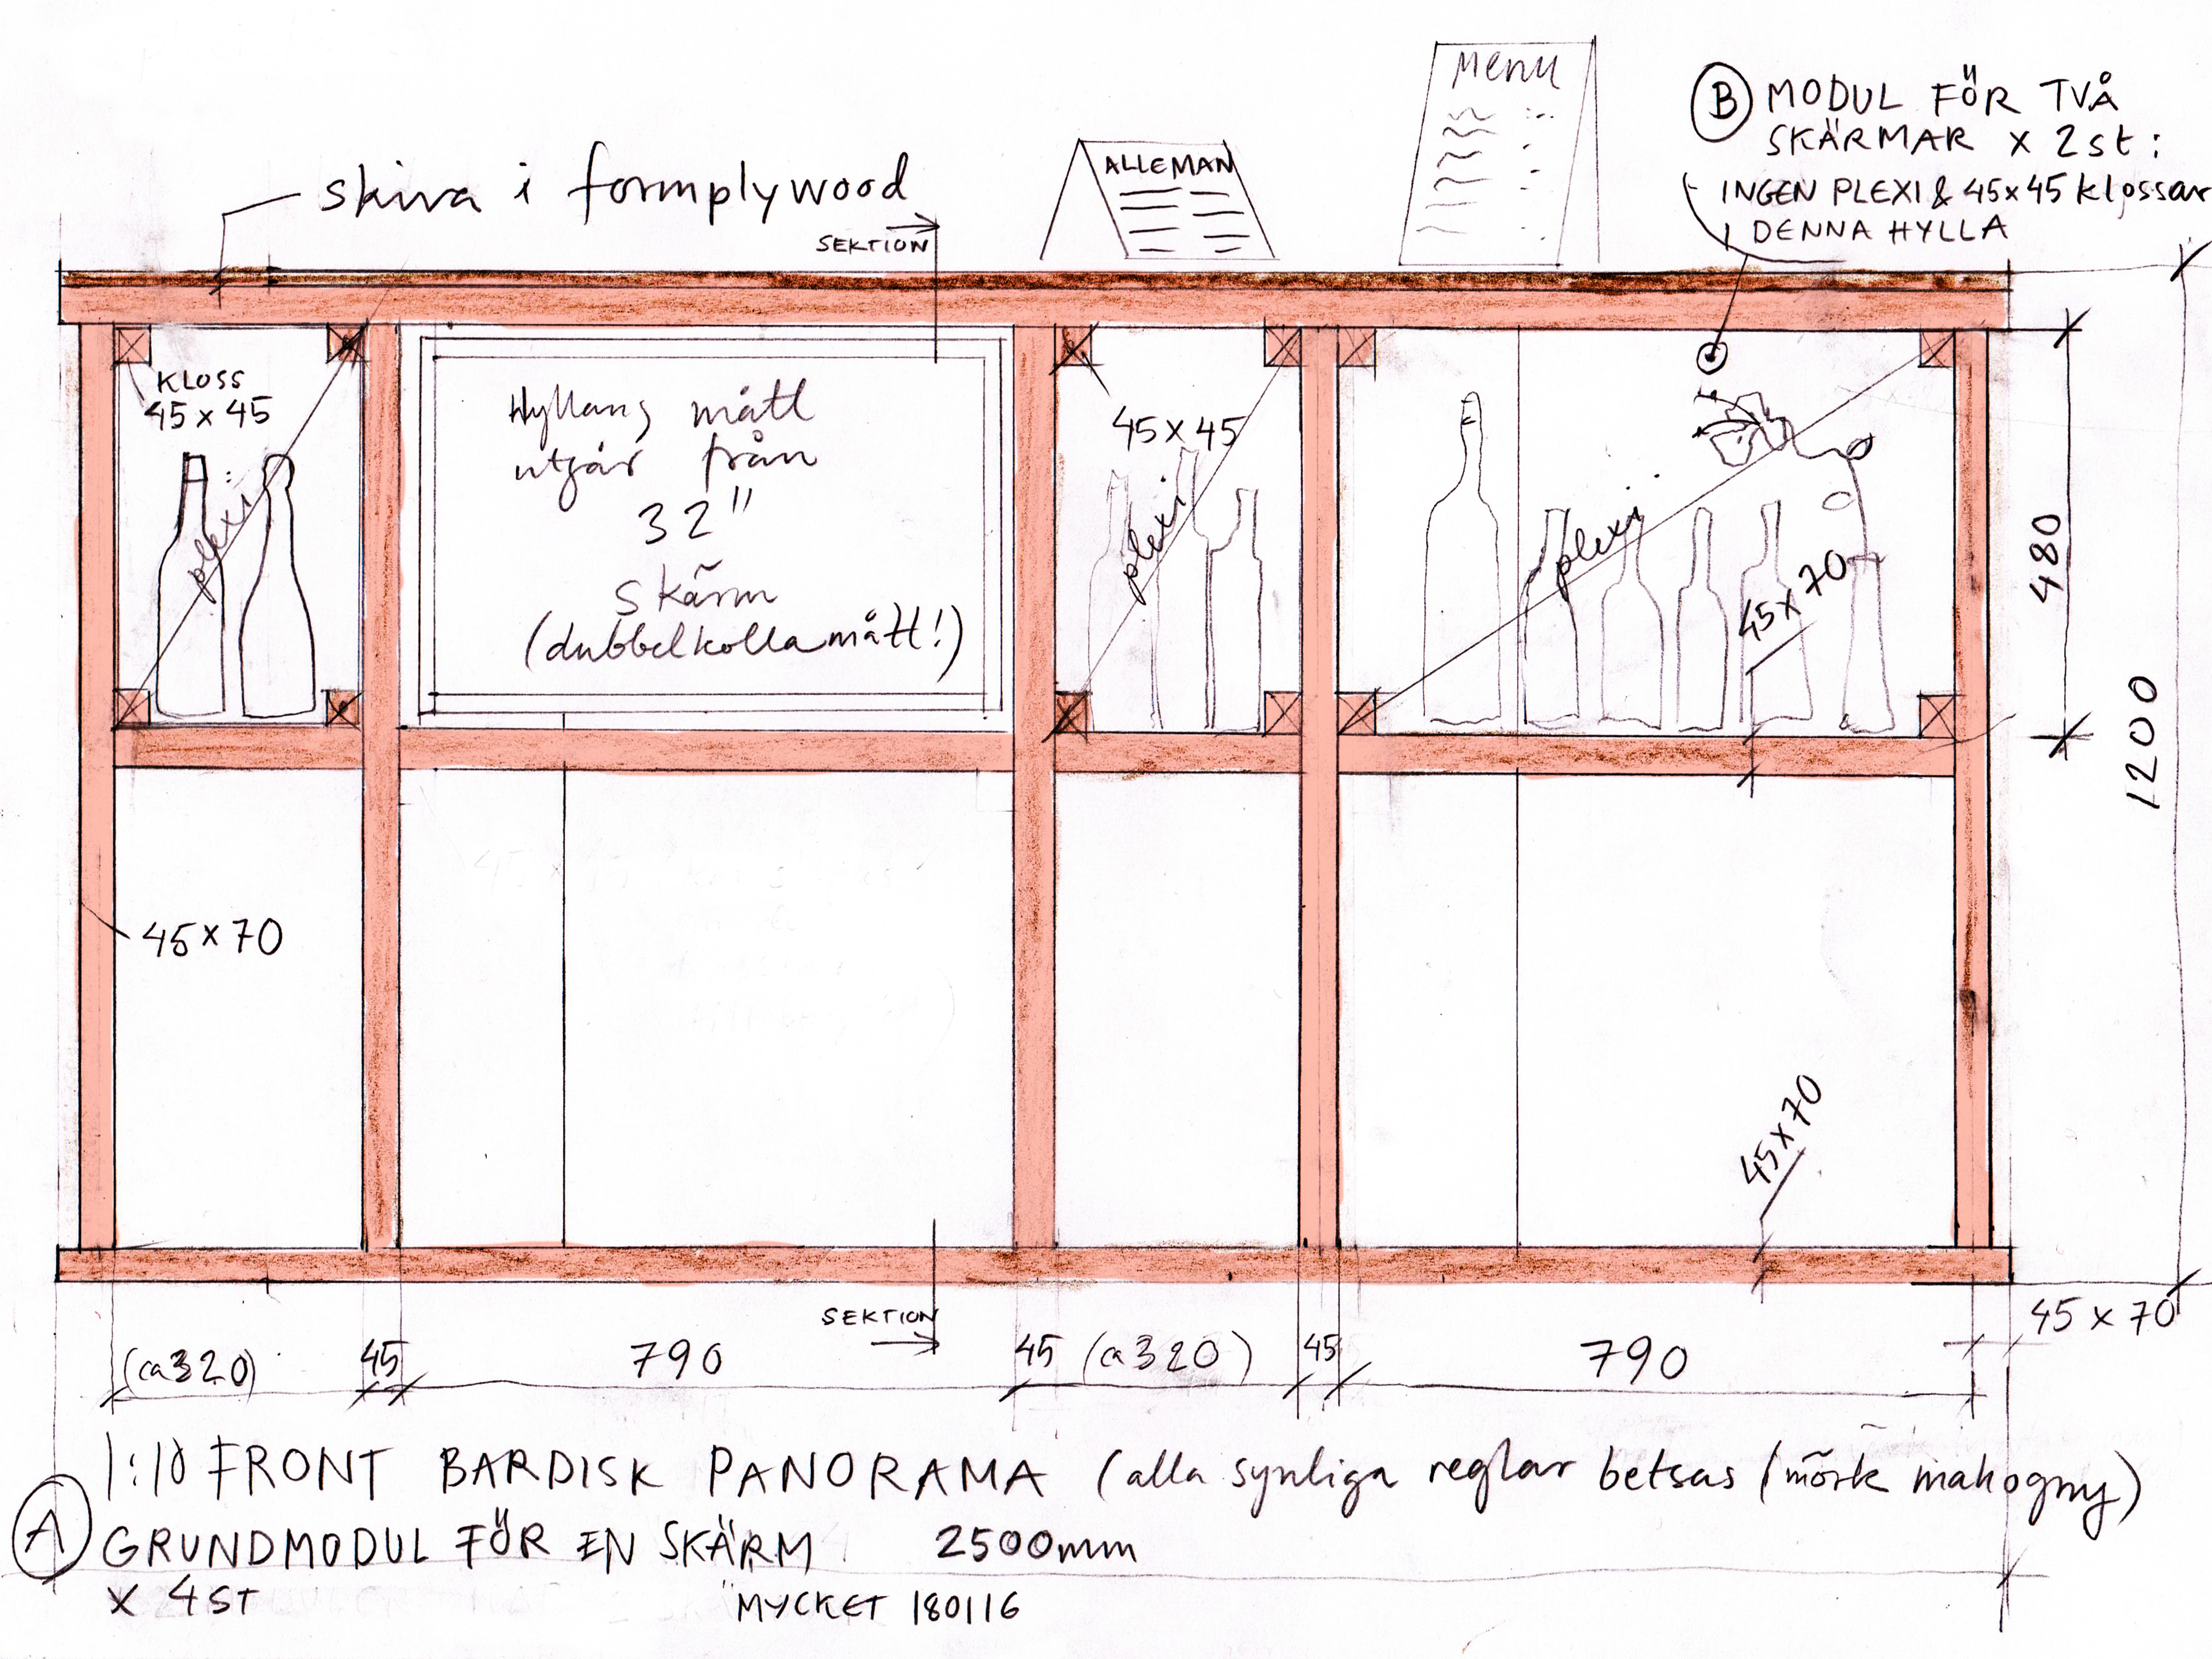 Menu
B MODUL FÖR TVÅ
SKÄRMAR x 2st:
INGEN PLEXI & 45x45 klossar
I DENNA HYLLA
ALLEMAN
skiva i formplywood
SEKTION
KLOSS
45 x 45
plexi
Hyllans mått
utgår från
32"
skärm
(dubbelkolla mått!)
45 x 45
plexi
plexi
45x70
480
1200
45x70
45x70
SEKTION
45 x 70
(ca 320) 45 790 45 (ca 320) 45 790
1:10 FRONT BARDISK PANORAMA (alla synliga reglar betsas (mörk mahogny)
A GRUNDMODUL FÖR EN SKÄRM 2500mm
x 4ST MYCKET 180116